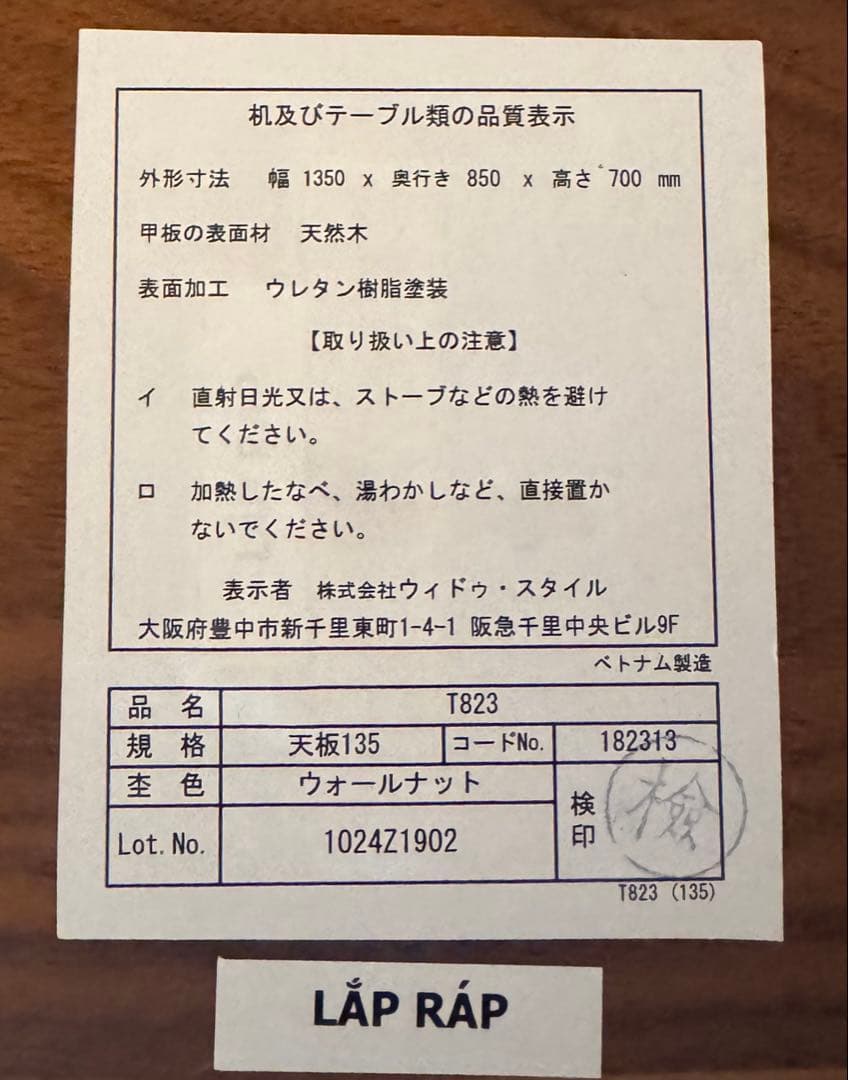 机及びテーブル類の品質表示
外形寸法 幅 1350 x 奥行き 850 x 高さ 700 mm
甲板の表面材 天然木
表面加工 ウレタン樹脂塗装
【取り扱い上の注意】
イ 直射日光又は、ストーブなどの熱を避け
てください。
ロ 加熱したなべ、湯わかしなど、直接置か
ないでください。
表示者 株式会社ウィドゥ・スタイル
大阪府豊中市新千里東町1-4-1 阪急千里中央ビル9F
ベトナム製造
品 名 T823
規 格 天板135 コードNo. 182313
杢 色 ウォールナット
検印 檢
Lot.No. 1024Z1902
T823 (135)
LẮP RÁP